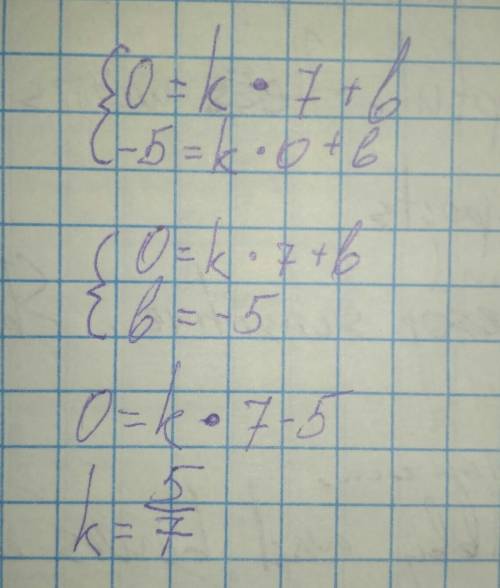 0 = k · 7 + b
-5 = k · 0 + b
0 = k · 7 + b
b = -5
0 = k · 7 - 5
k = 5/7